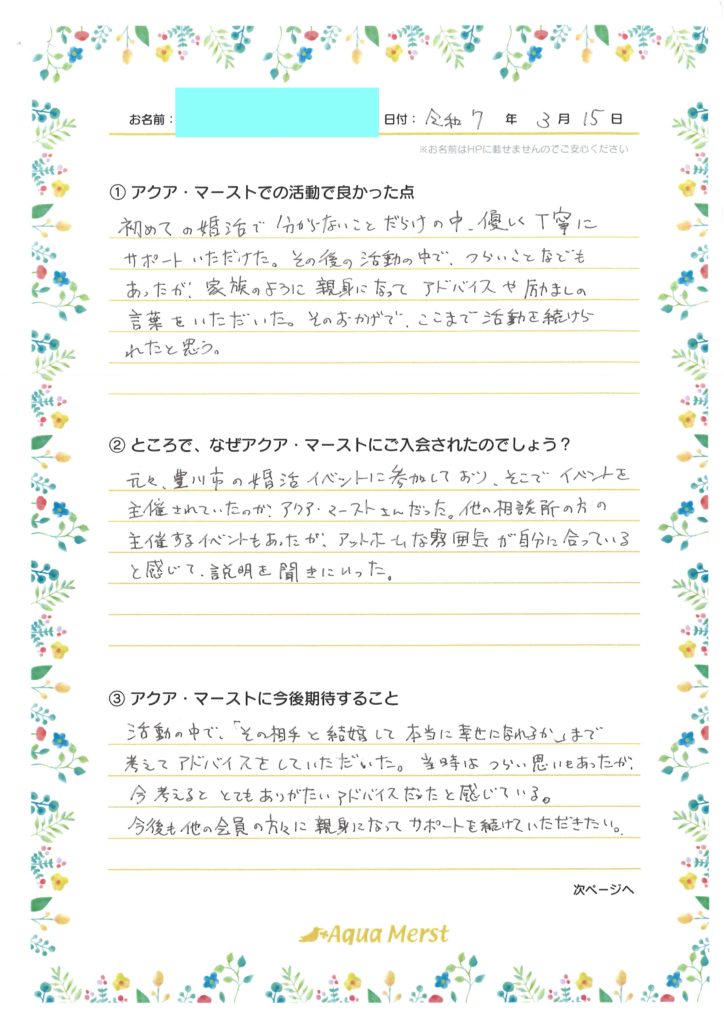 お名前： 日付： 令和 7 年 3 月 15 日
※お名前はHPに載せませんのでご安心ください
① アクア・マーストでの活動で良かった点
初めての婚活で分からないことだらけの中、優しく丁寧に
サポートいただけた。その後の活動の中で、つらいことなども
あったが、家族のように親身になってアドバイスや励ましの
言葉をいただいた。そのおかげで、ここまで活動を続けら
れたと思う。
② ところで、なぜアクア・マーストにご入会されたのでしょう？
元々、豊川市の婚活イベントに参加しており、そこでイベントを
主催されていたのが、アクア・マーストさんだった。他の相談所の方の
主催するイベントもあったが、アットホームな雰囲気が自分に合っている
と感じて、説明を聞きにいった。
③ アクア・マーストに今後期待すること
活動の中で、「その相手と結婚して本当に幸せになれるか」まで
考えてアドバイスをしていただいた。当時はつらい思いもあったが、
今考えるととてもありがたいアドバイスだったと感じている。
今後も他の会員の方々に親身になってサポートを続けていただきたい。
次ページへ
Aqua Merst